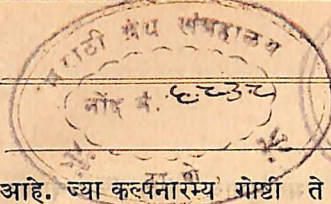 मराठी ग्रंथ संग्रहालय
नोंद नं.
आहे. ज्या कल्पनारम्य गोष्टी ते